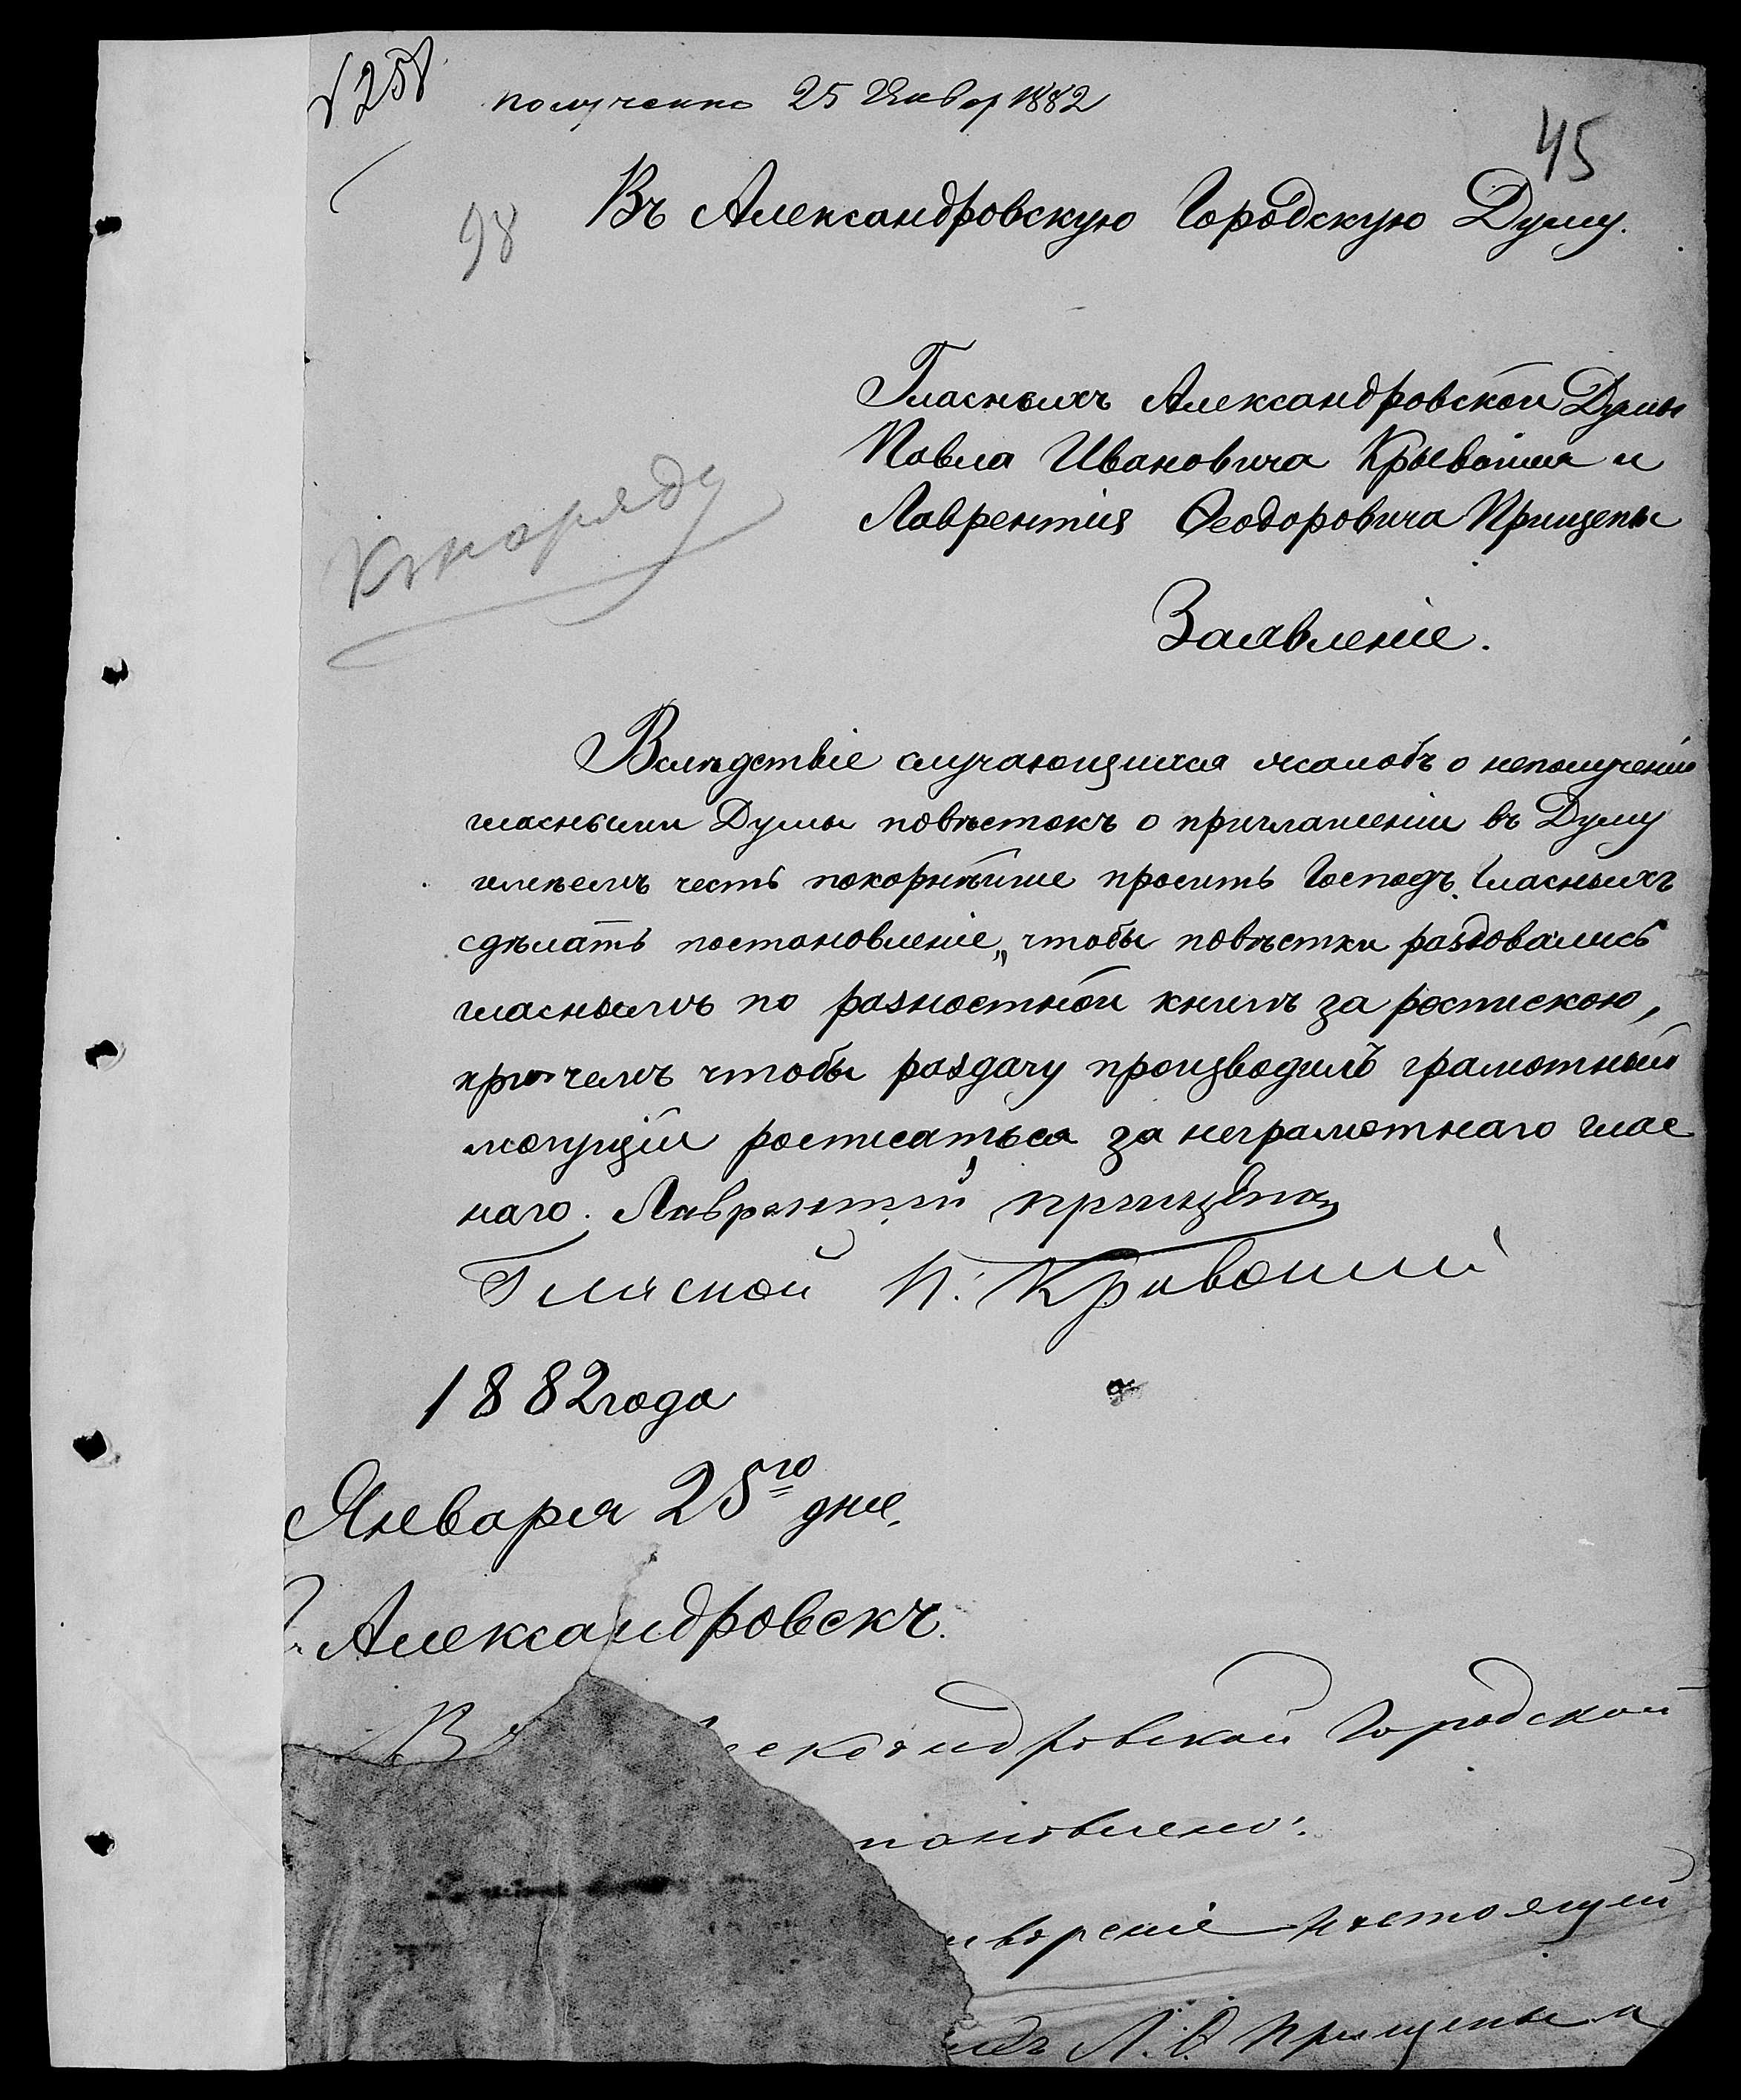 № 258
полученно 25 Январ 1882
45
98
Въ Александровскую Городскую Думу.
Гласныхъ Александровской Думы
Павла Ивановича Крывошия и
Лаврентія Ѳеодоровича Прищепы
Къ наряду
Заявленіе.
Вслѣдствіе случающихся жалобъ о неполученіи
гласными Думы повѣстокъ о приглашеніи въ Думу
имѣемъ честь покорнѣйше просить Господъ Гласныхъ
сдѣлать постановленіе, чтобы повѣстки раздовались
гласнымъ по разностной книгѣ за роспискою,
при чемъ чтобы раздачу производилъ грамотный
могущій росписаться за неграмотнаго глас
наго. Лаврентий прищепа
Гласной П. Кривоший
1882 года
Января 25го дня.
Г. Александровскъ.
В ександровской Городской
тановлено:
творенie настоящей
Л. Ѳ. Прищепы и